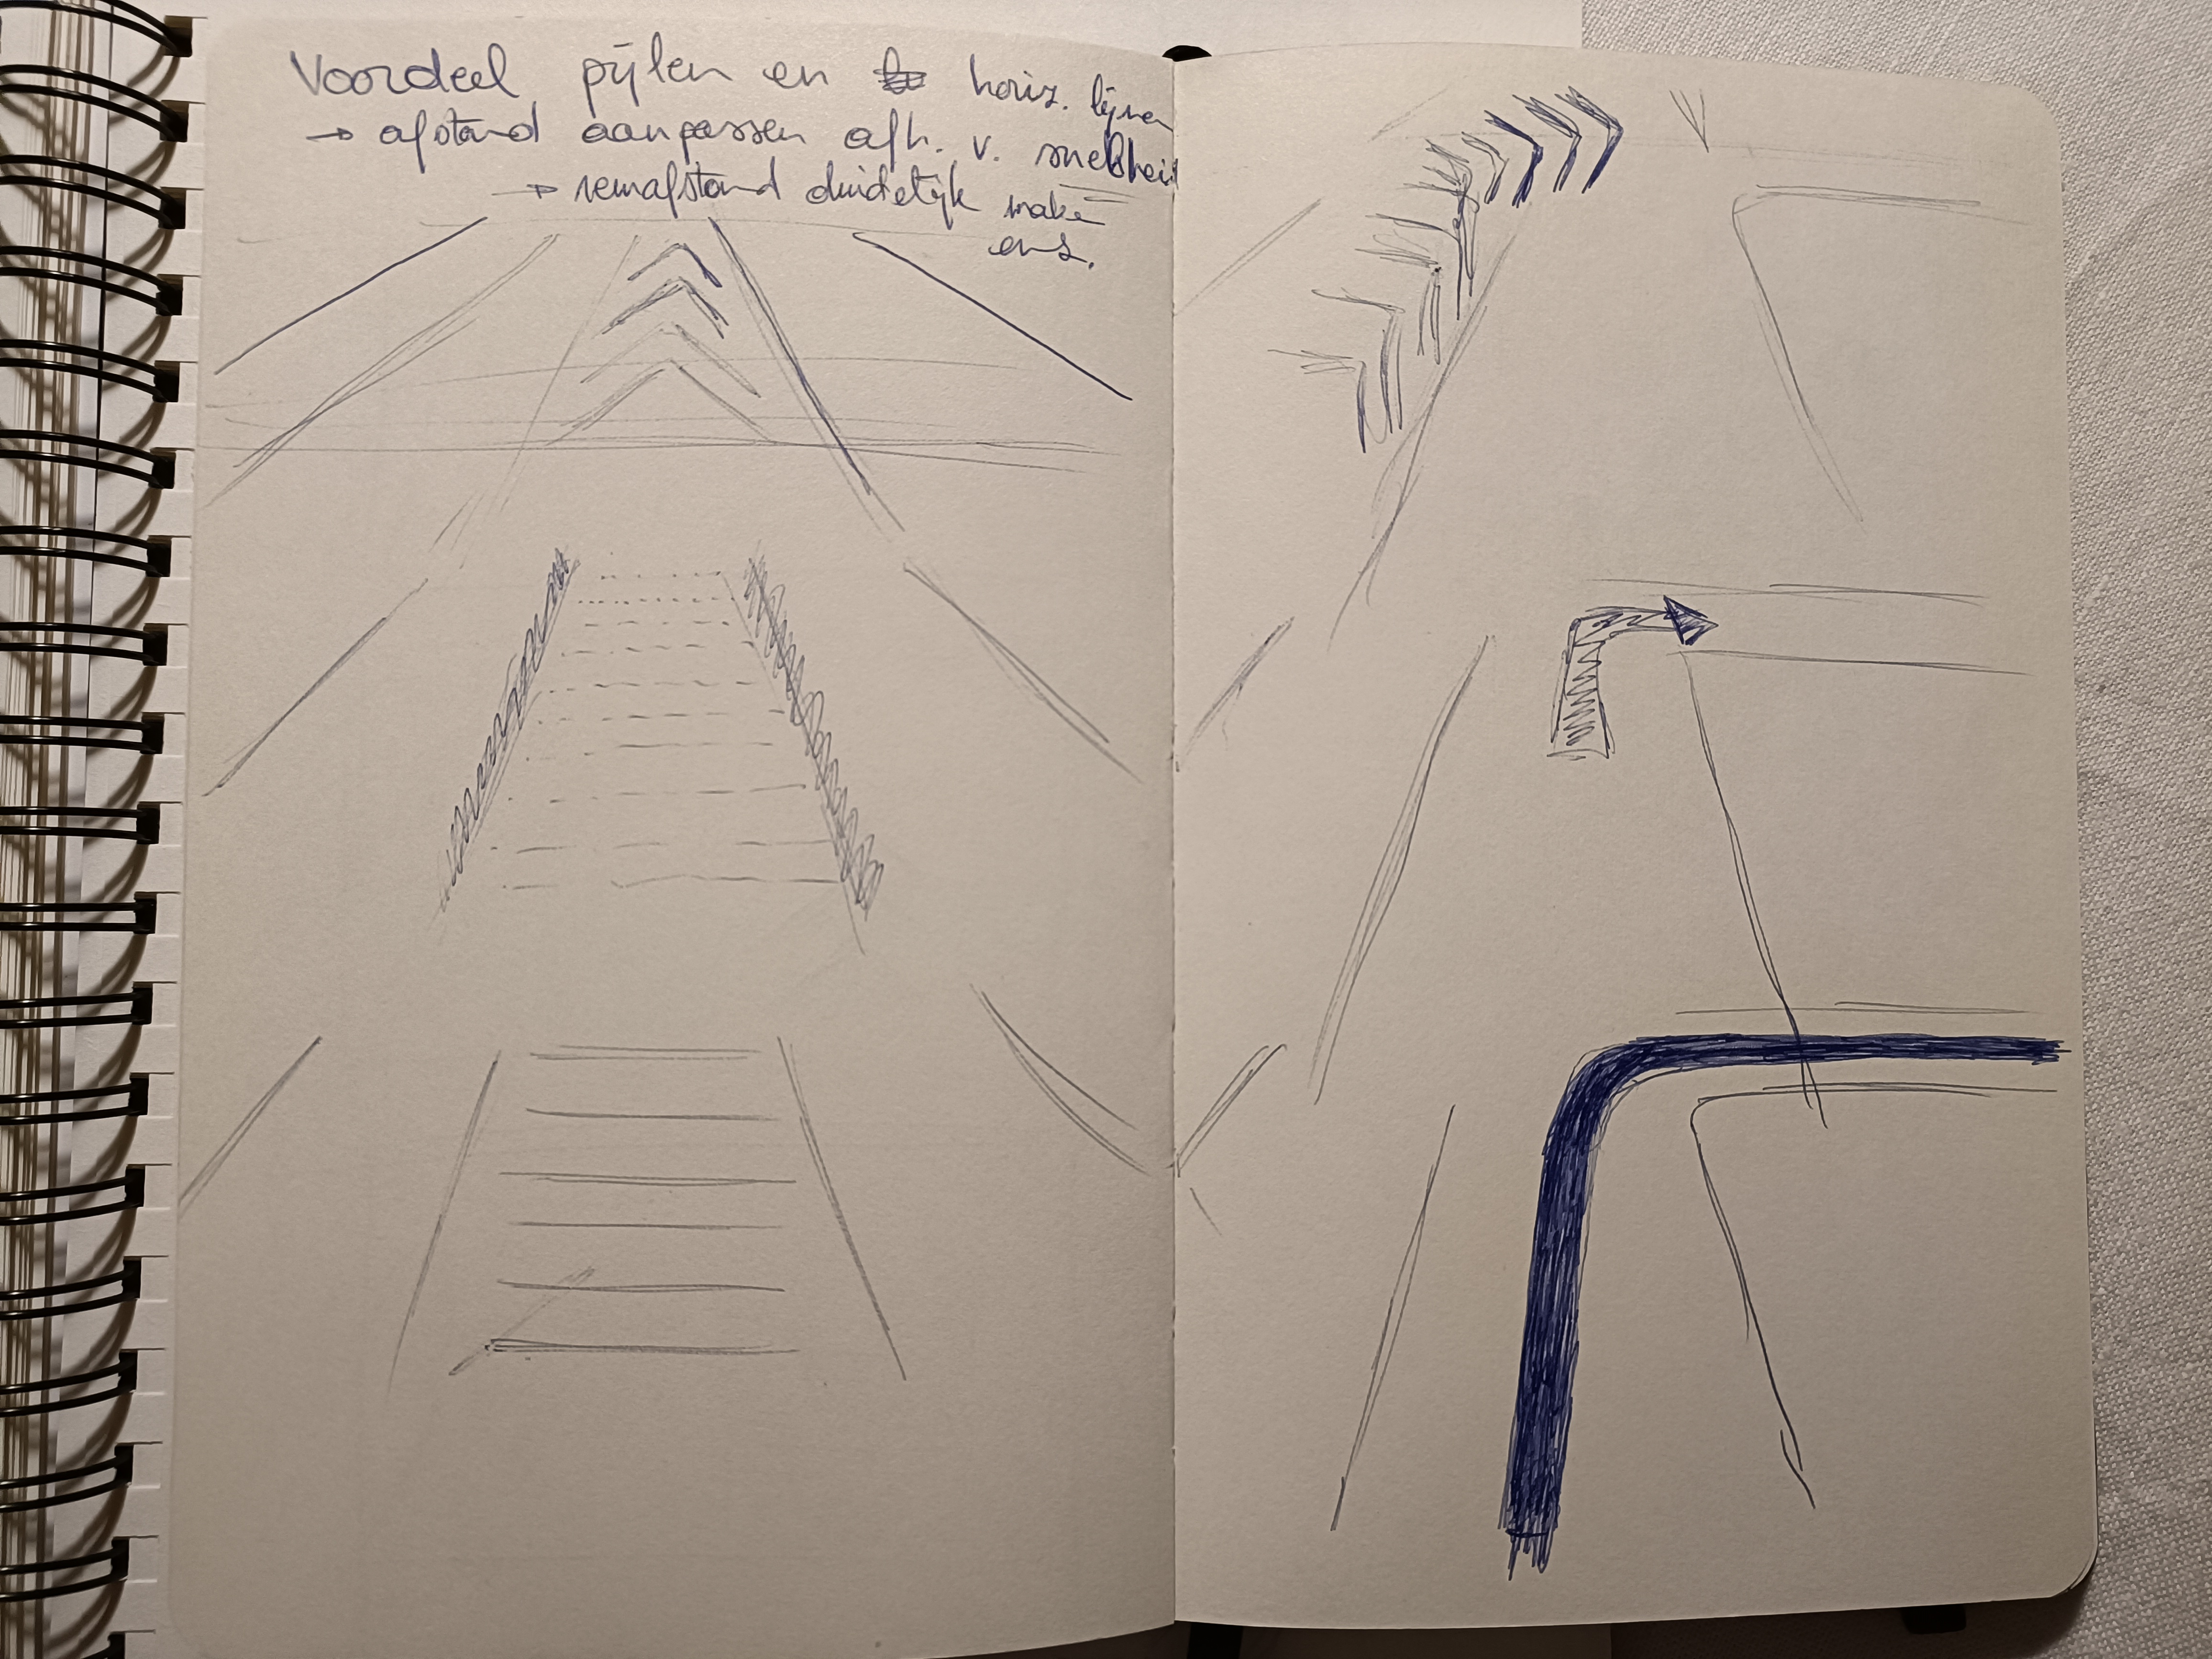 Voordeel pijlen en horiz. lijnen
→ afstand aanpassen afh. v. snelheid
→ remafstand duidelijk make
enz.